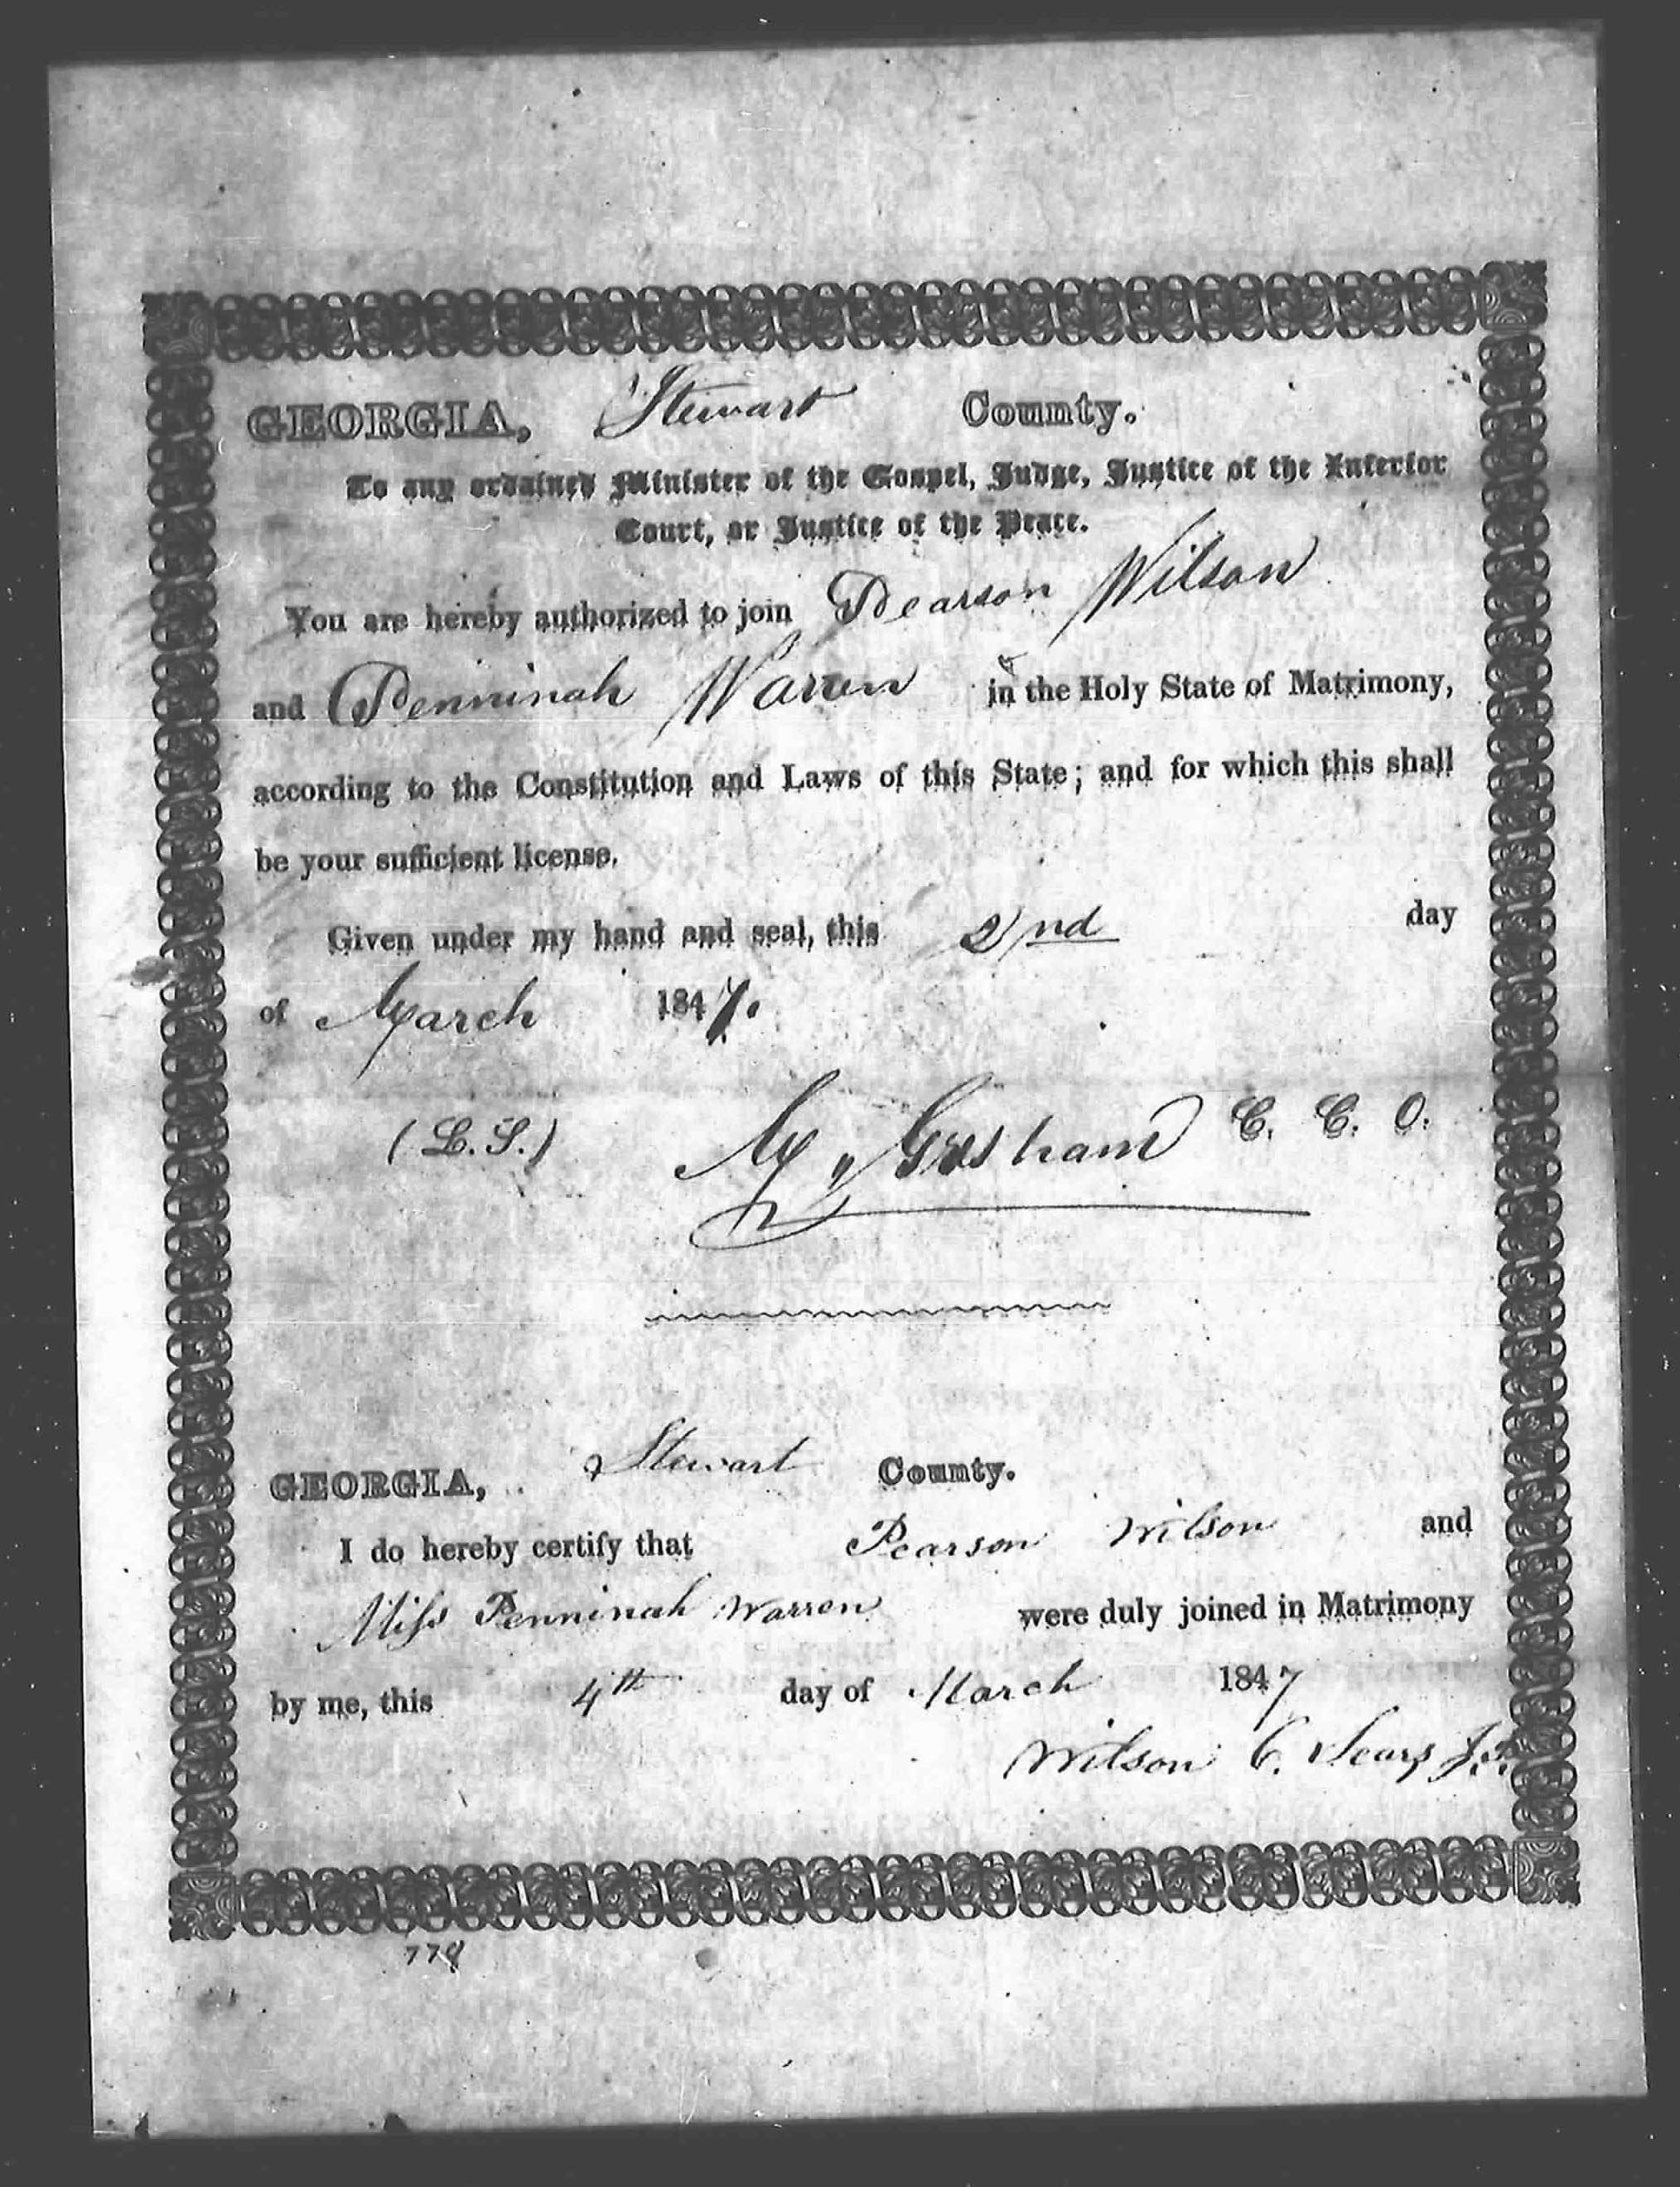 GEORGIA, Stewart County.
To any ordained Minister of the Gospel, Judge, Justice of the Inferior
Court, or Justice of the Peace.
You are hereby authorized to join Pearson Wilson
and Penninah Warren in the Holy State of Matrimony,
according to the Constitution and Laws of this State; and for which this shall
be your sufficient license.
Given under my hand and seal, this 2nd day
of March 1847.
(L.S.) M Gresham C. C. O.
GEORGIA, Stewart County.
I do hereby certify that Pearson Wilson and
Miss Penninah Warren were duly joined in Matrimony
by me, this 4th day of March 1847
Wilson C. Sears J.P.
778